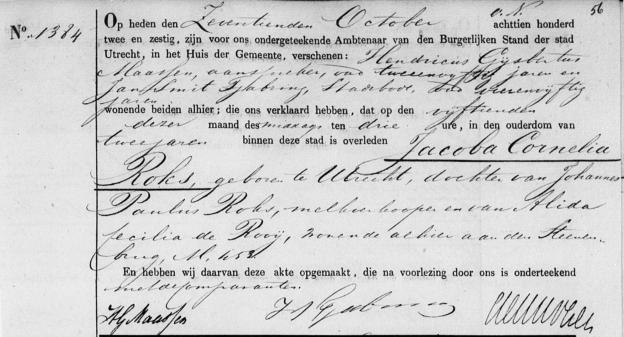 56
No. 1384
Op heden den Zeventienden October a. N. achttien honderd
twee en zestig, zijn voor ons ondergeteekende Ambtenaar van den Burgerlijken Stand der stad
Utrecht, in het Huis der Gemeente, verschenen: Hendricus Gijsbertus
Maassen, aanspreker, oud tweeenvijftig jaren en
Jan Smit IJsbring, Stadsbode, oud vierenvijftig
jaren
wonende beiden alhier; die ons verklaard hebben, dat op den vijftienden
dezer maand des middags ten drie ure, in den ouderdom van
twee jaren binnen deze stad is overleden Jacoba Cornelia
Roks, geboren te Utrecht, dochter van Johannes
Paulus Roks, melkverkooper en van Alida
Cecilia de Rooij, wonende alhier aan den Steenen-
brug, M. 458.
En hebben wij daarvan deze akte opgemaakt, die na voorlezing door ons is onderteekend
met de comparanten.
HG Maassen